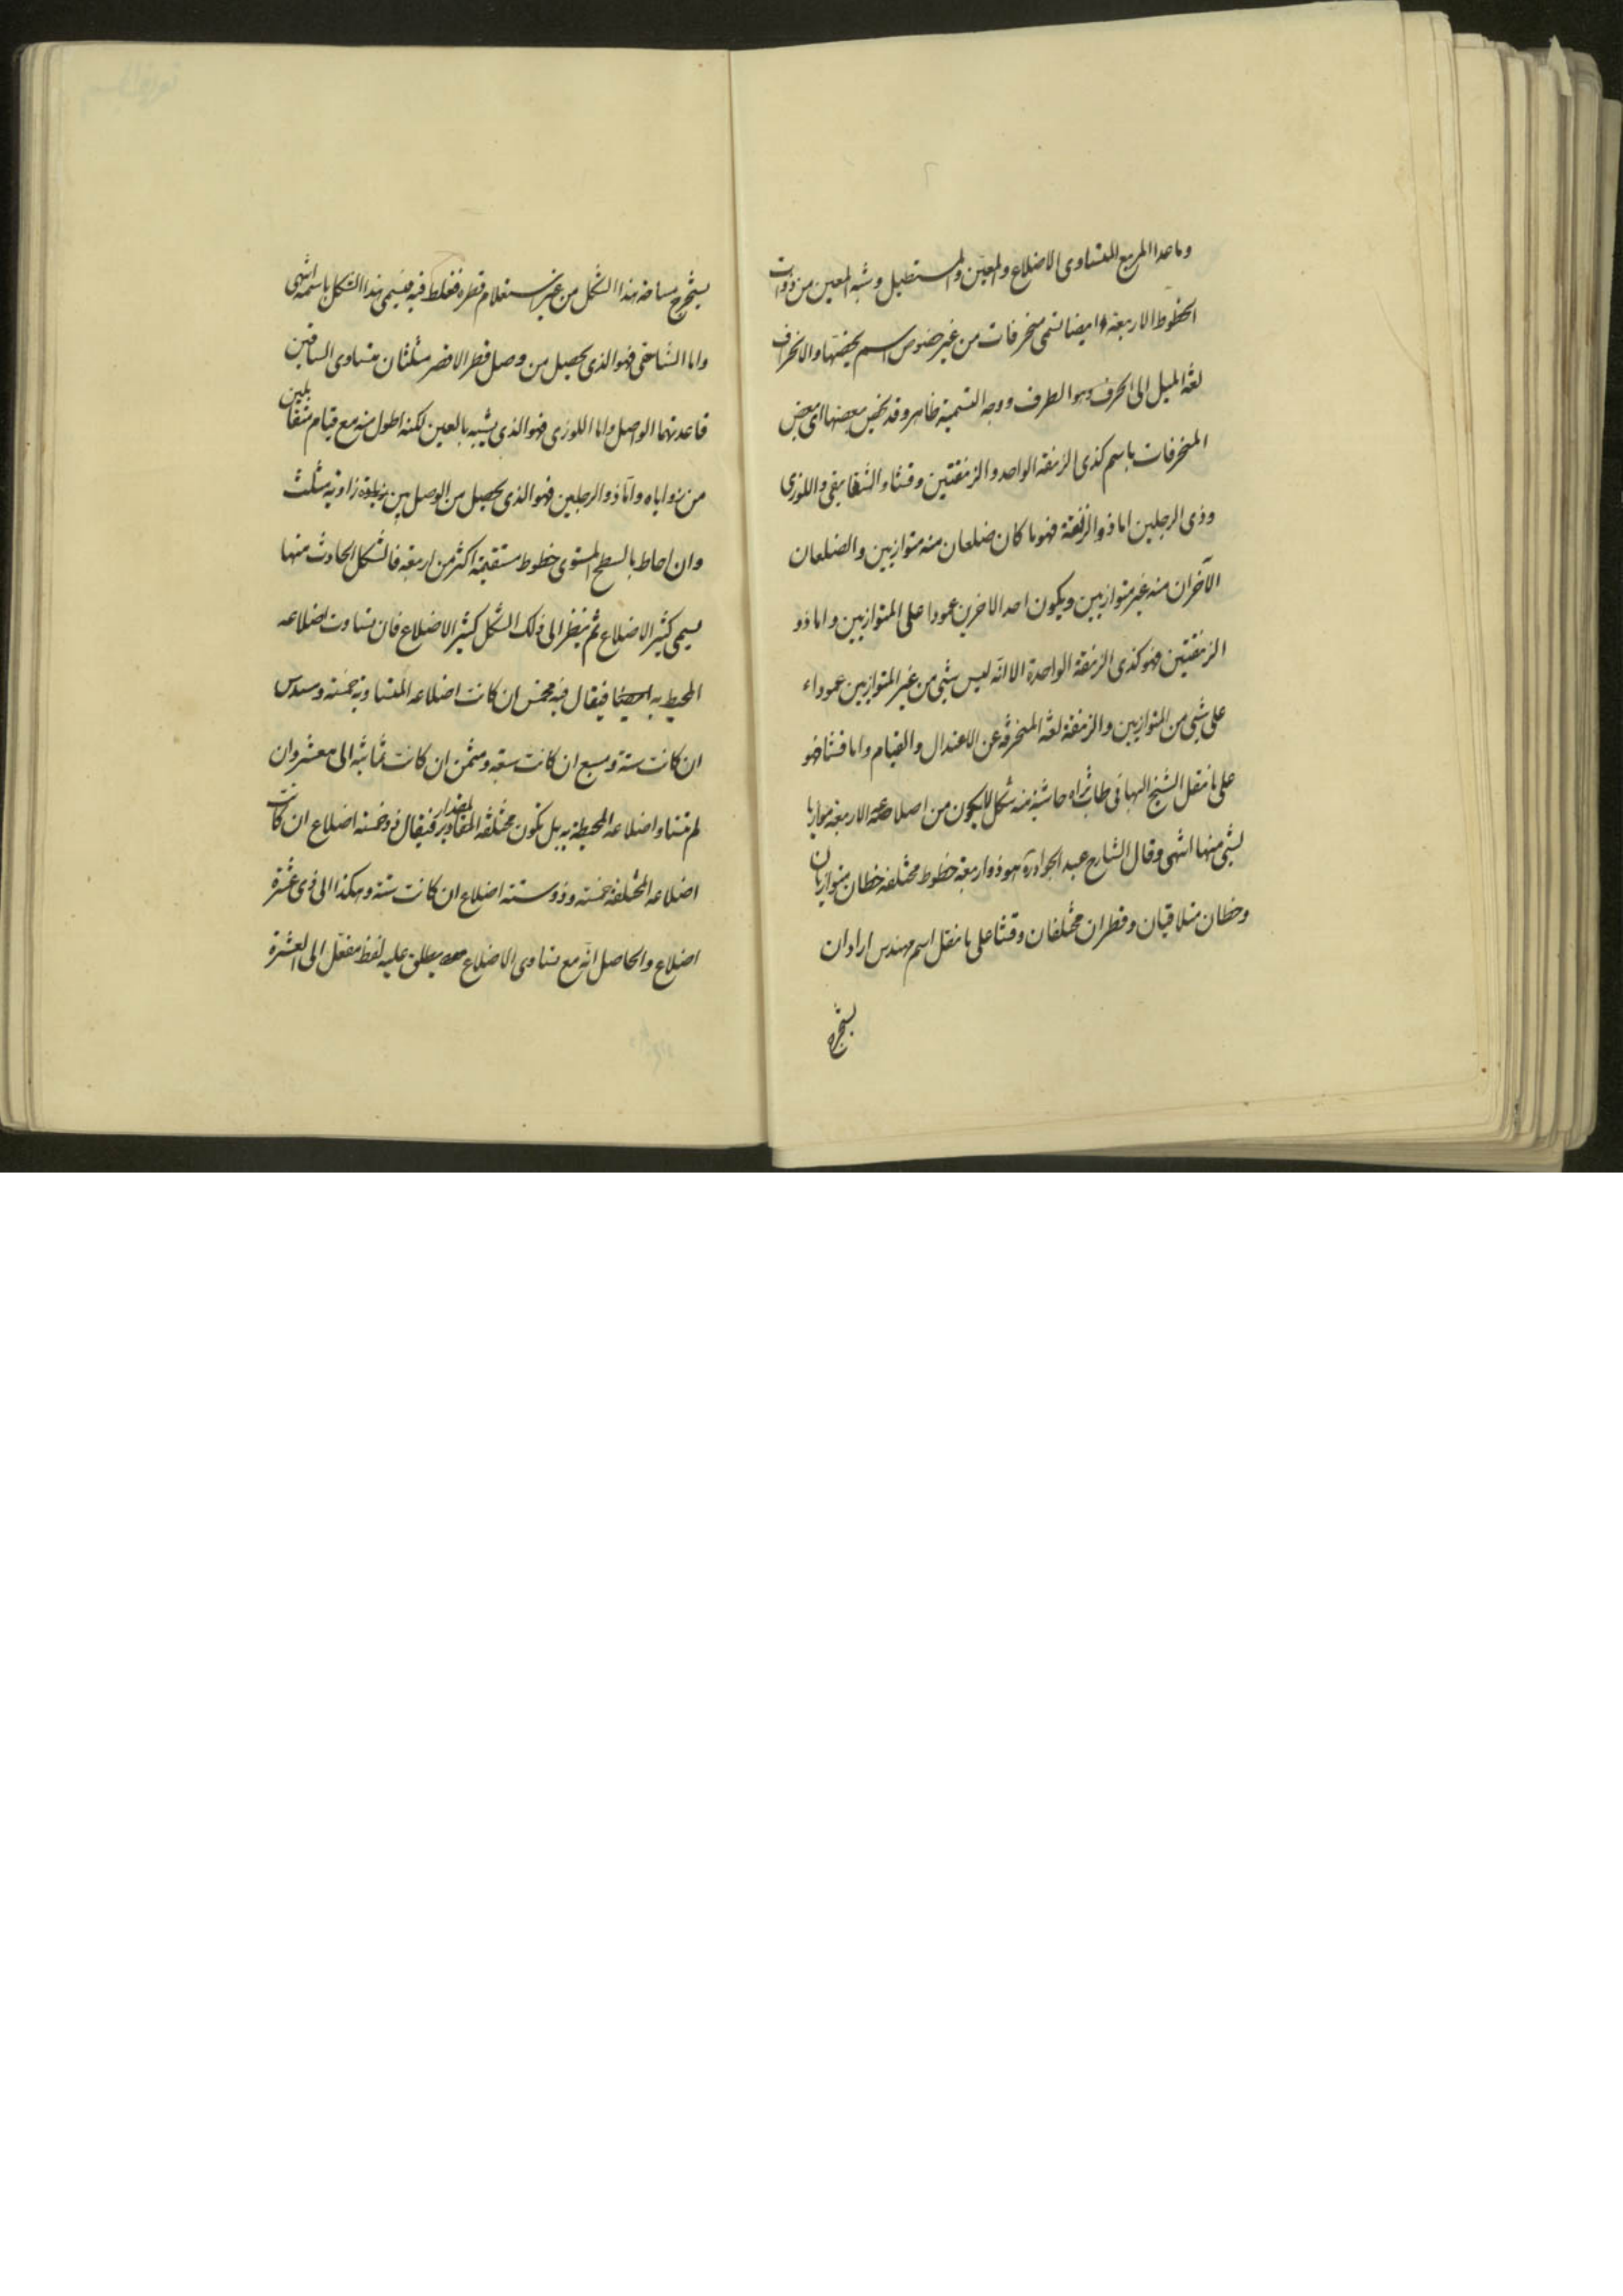 وما عدا المربع المتساوى الاضلاع والمعين والمستطيل وشبه المعين من ذوات
الخطوط الاربعة ايضا تسمى منحرفات من غير خصوص اسم يخصها والانحراف
لغة الميل الى الحرف وهو الطرف ووجه التسمية ظاهر وقد يخص بعضها اى بعض
المنحرفات باسم كذى الزنقة الواحد والزنقتين وقثاء والشقايقى واللوزى
وذى الرجلين اما ذو الزنقة فهو ما كان ضلعان منه متوازيين والضلعان
الآخران منه غير متوازيين ويكون احد الاخرين عمودا على المتوازيين واما ذو
الزنقتين فهو كذى الزنقة الواحدة الا انه ليس شئ من غير المتوازيين عموداء
على شئ من المتوازيين والزنقة لغة المنحرفة عن الاعتدال والقيام واما قثا فهو
على ما نقل الشيخ البهائى طاب ثراه حاشية منه شكل لا يكون من اضلاعه الاربعة موازيا
لشئ منها انتهى وقال الشارح عبد الجواد ره هو ذو اربعة خطوط مختلفة خطان متوازيان
وخطان متلاقيان وقطران مختلفان وقثا على ما نقل اسم مهندس اراد ان
يستخرج
يستخرج مساحة هذا الشكل من غير استعلام قطره فغلط فيه فسمى هذا الشكل باسمه انتهى
واما الشقايقى فهو الذى يحصل من وصل قطر الاقصر مثلثان متساوى الساقين
قاعدتهما الواصل واما اللوزى فهو الذى يشبه بالعين لكنه اطول منه مع قيام متقابلين
من زواياه واما ذو الرجلين فهو الذى يحصل من الوصل بين زاوية مثلث
وان احاط بالسطح المستوى خطوط مستقيمة اكثر من اربعة فالشكل الحادث منها
يسمى كثير الاضلاع ثم ينظر الى ذلك الشكل كثير الاضلاع فان تساوت اضلاعه
المحيط به فيقال فيه مخمس ان كانت اضلاعه المتساوية خمسة ومسدس
ان كانت ستة ومسبع ان كانت سبعة ومثمن ان كانت ثمانية الى معشر وان
لم تتساو اضلاعه المحيطة به بل تكون مختلفة المقدار فيقال ذو خمسة اضلاع ان كانت
اضلاعه المختلفة خمسة وذو ستة اضلاع ان كانت ستة وهكذا الى ذى عشرة
اضلاع والحاصل انه مع تساوى الاضلاع يطلق عليه لفظ مفعل الى العشرة